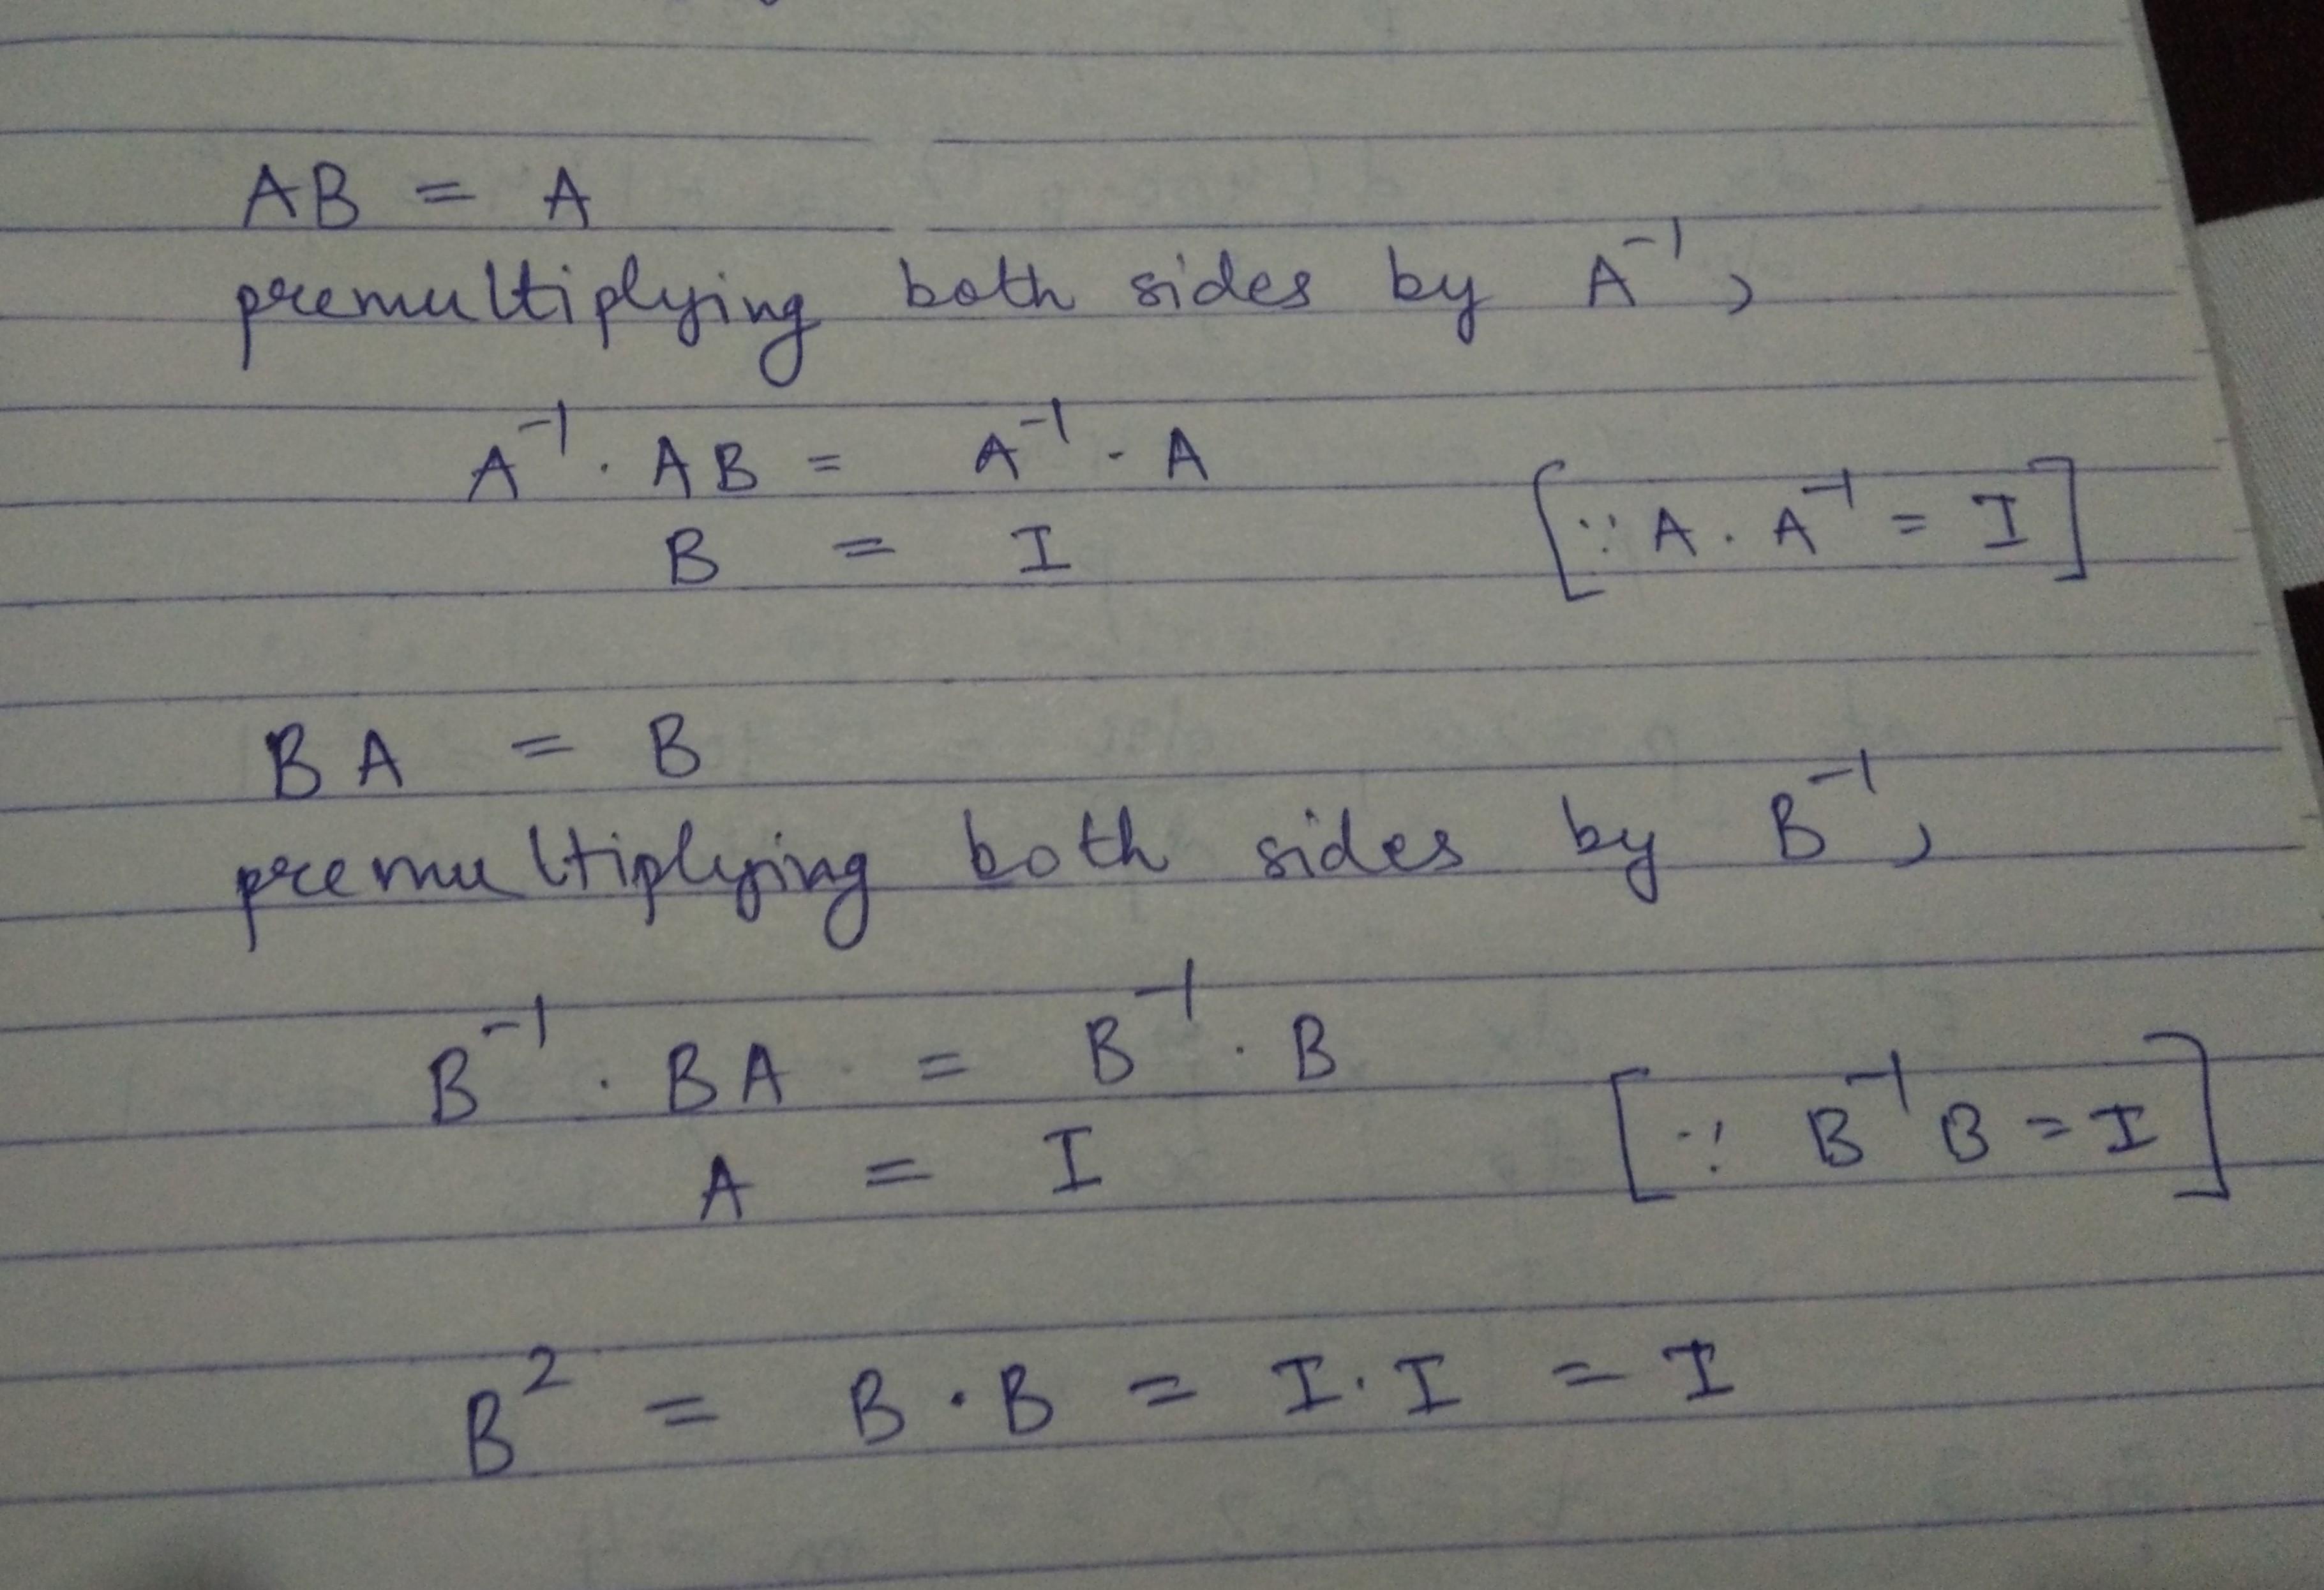 AB = A
premultiplying both sides by A⁻¹,
A⁻¹ . AB = A⁻¹ . A
B = I [∵ A . A⁻¹ = I]
BA = B
premultiplying both sides by B⁻¹,
B⁻¹ . BA = B⁻¹ . B
A = I [∵ B⁻¹ B = I]
B² = B . B = I . I = I